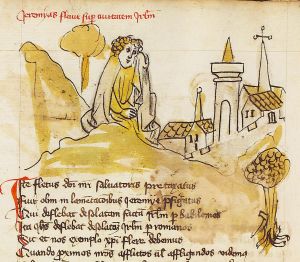 Jeremias fleuit sup ciuitatem Jrlm
Iste fletus dni nri saluatoris pretaxatus
Fuit olim in lamentacionibus Jeremie pfigatus
Qui deflebat desolatam facta Jrlm p babilonios
Ita xps deflebat desolandā Jrlm p romanos
Sic et nos exemplo xpi flere debemus
Quando proximos nros afflictos ul affligendos videmus